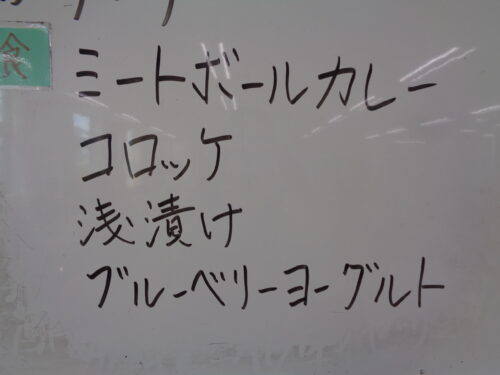 食
ミートボールカレー
コロッケ
浅漬け
ブルーベリーヨーグルト